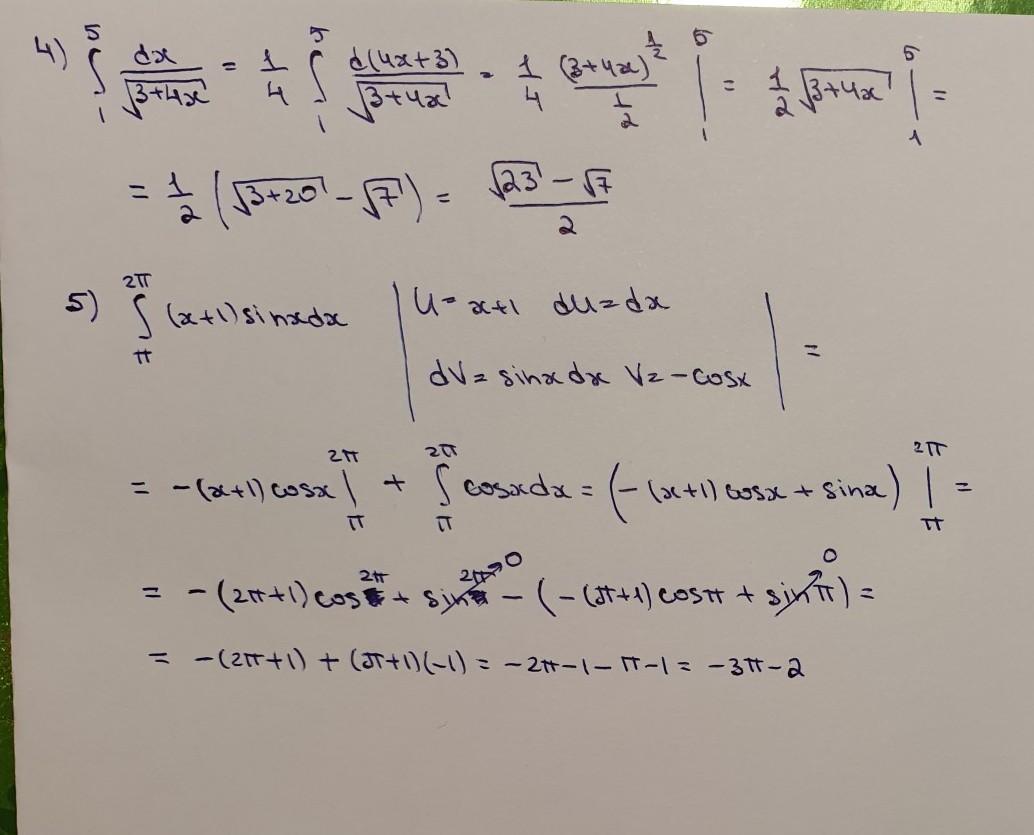 4) ∫₁⁵ dx/√(3+4x) = 1/4 ∫₁⁵ d(4x+3)/√(3+4x) = 1/4 (3+4x)^(1/2)/(1/2) |₁⁵ = 1/2 √(3+4x) |₁⁵ =
= 1/2 (√(3+20) - √7) = (√23 - √7)/2
5) ∫_π^2π (x+1) sinx dx | U = x+1 dU = dx
dV = sinx dx V = -cosx | =
= -(x+1) cosx |_π^2π + ∫_π^2π cosx dx = (-(x+1) cosx + sinx) |_π^2π =
= -(2π+1) cos 2π + sin 2π → 0 - (-(π+1) cosπ + sinπ → 0) =
= -(2π+1) + (π+1)(-1) = -2π - 1 - π - 1 = -3π - 2